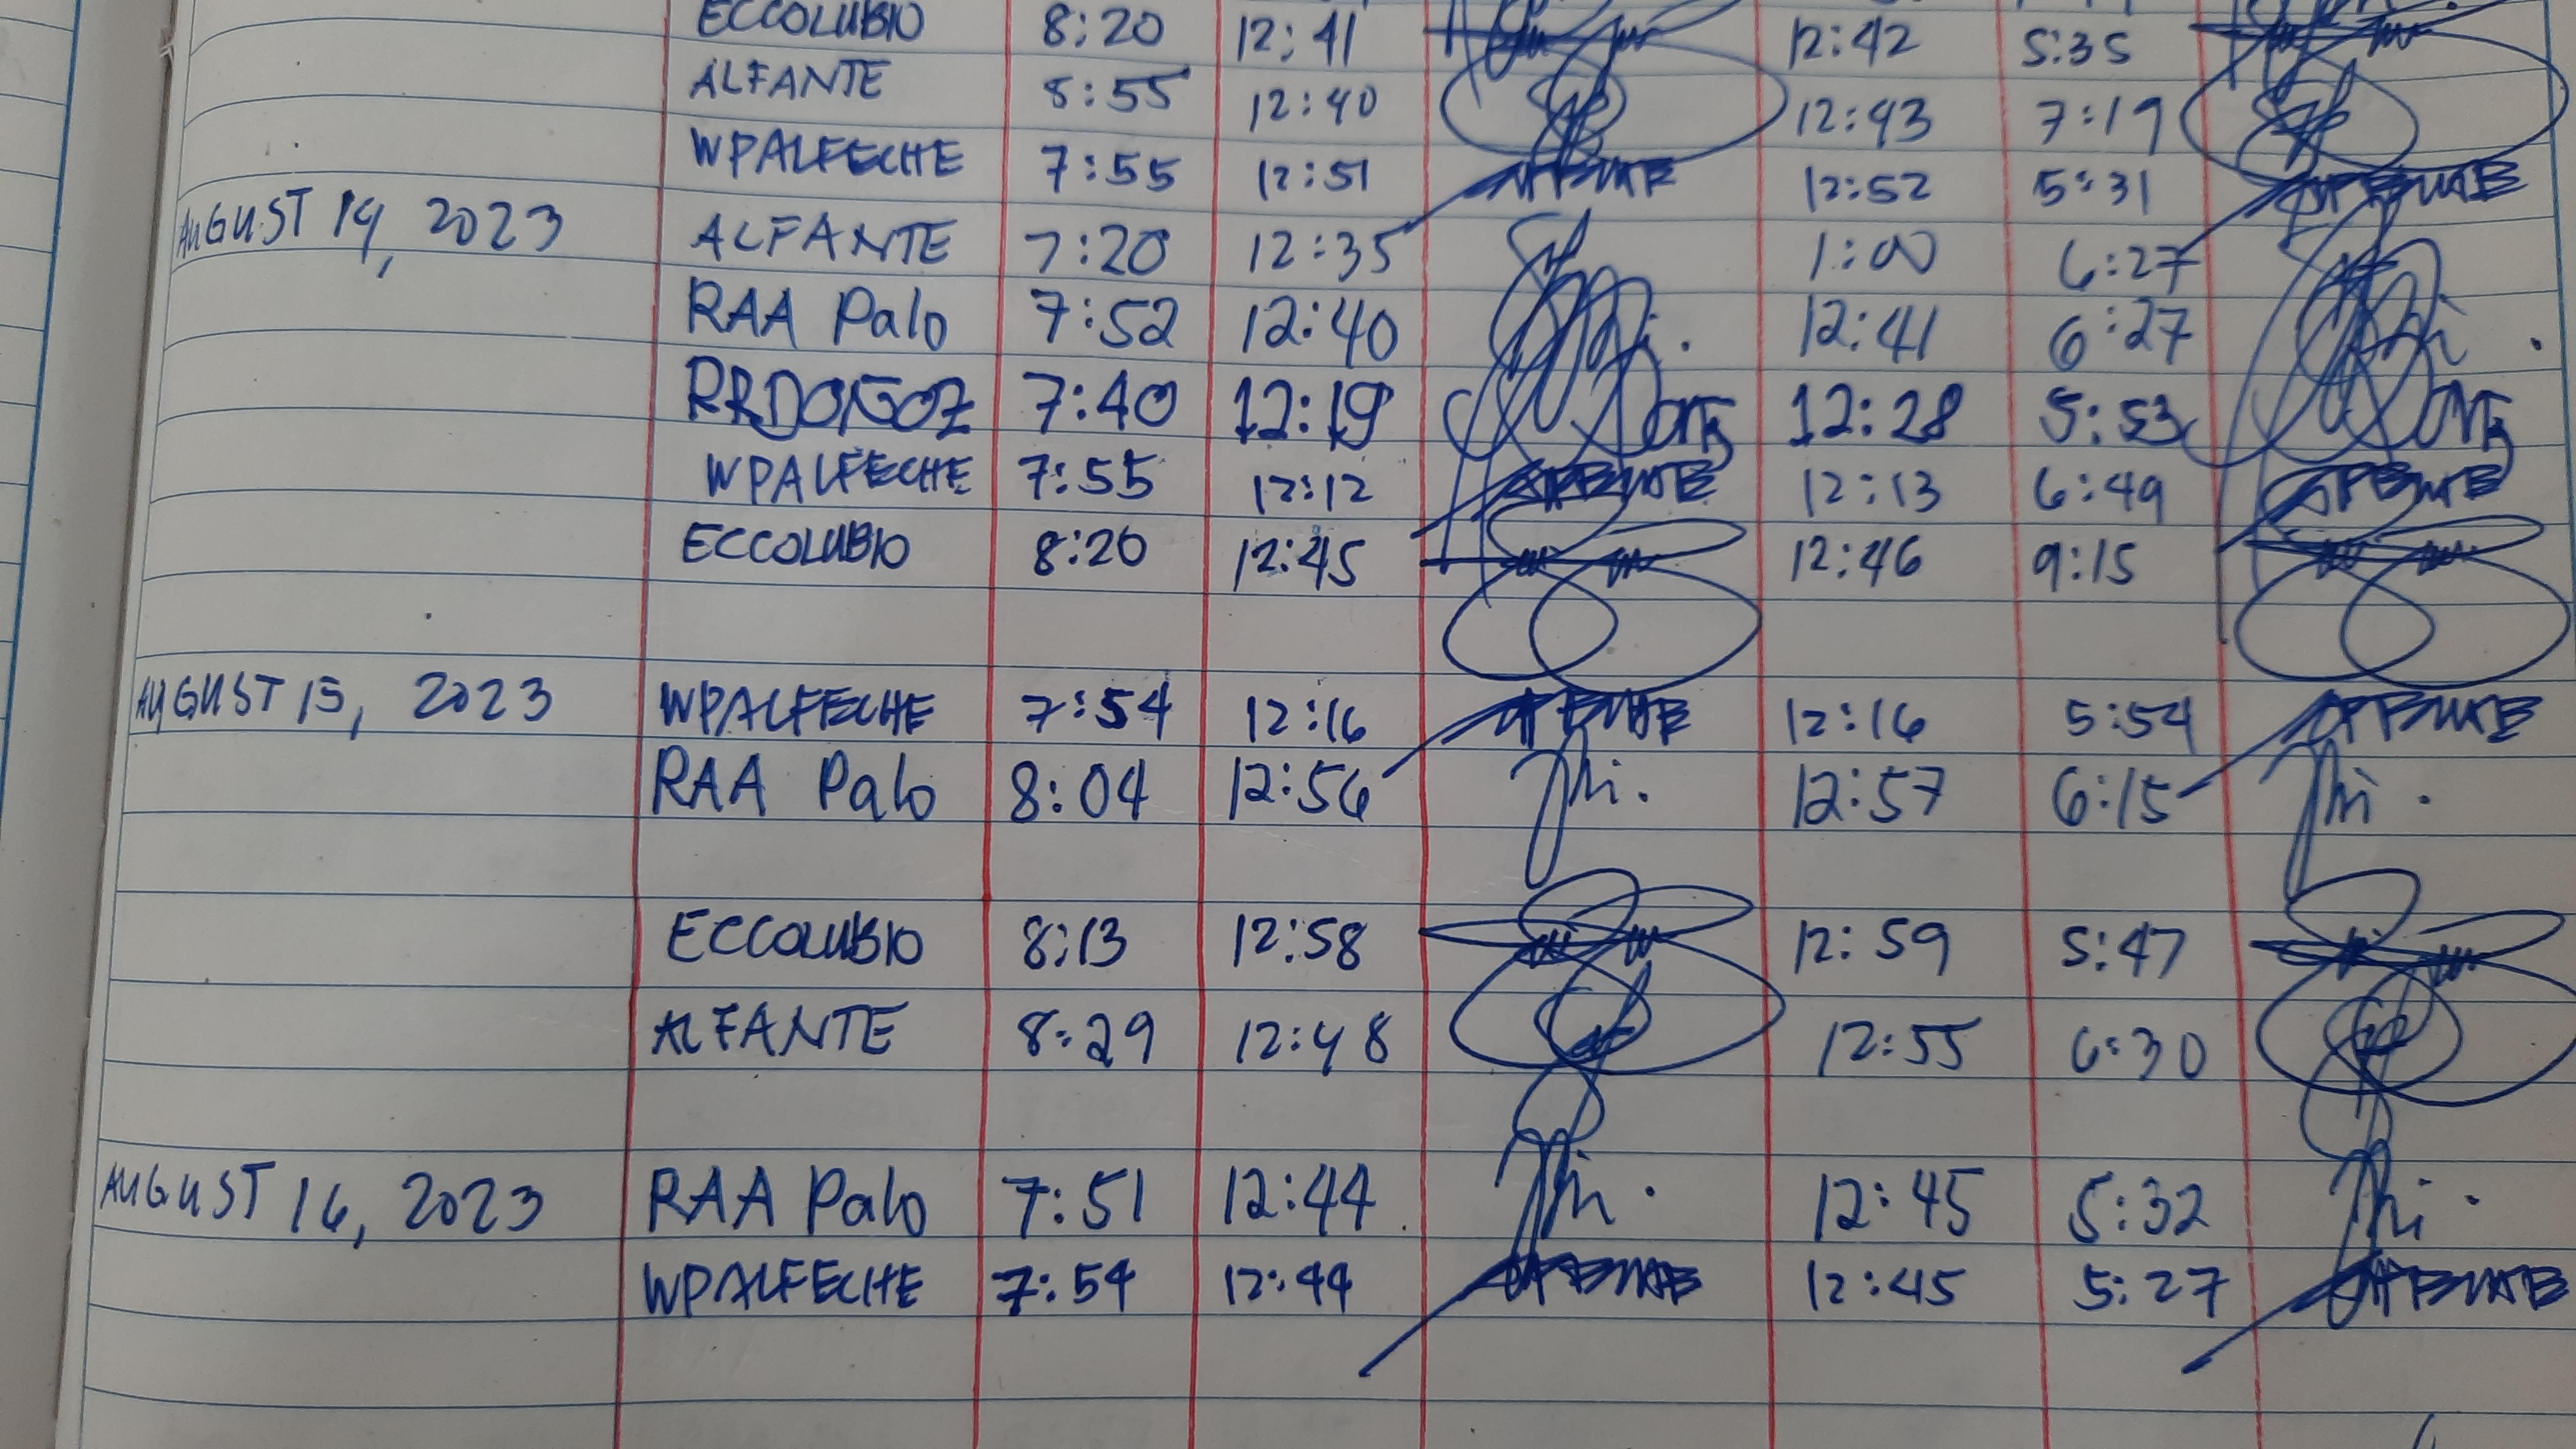 ECCOLUBIO 8:20 12:41 12:42 5:35
ALFANTE 8:55 12:40 12:43 7:19
WPALFECHE 7:55 12:51 12:52 5:31
AUGUST 14, 2023 ALFANTE 7:20 12:35 1:00 6:27
RAA Palo 7:52 12:40 12:41 6:27
7:40 12:19 12:28 5:53
WPALFECHE 7:55 12:12 12:13 6:49
ECCOLUBIO 8:20 12:45 12:46 9:15
AUGUST 15, 2023 WPALFECHE 7:54 12:16 12:16 5:54
RAA Palo 8:04 12:56 12:57 6:15
ECCOLUBIO 8:13 12:58 12:59 5:47
ALFANTE 8:29 12:48 12:55 6:30
AUGUST 16, 2023 RAA Palo 7:51 12:44 12:45 5:32
WPALFECHE 7:54 12:44 12:45 5:27